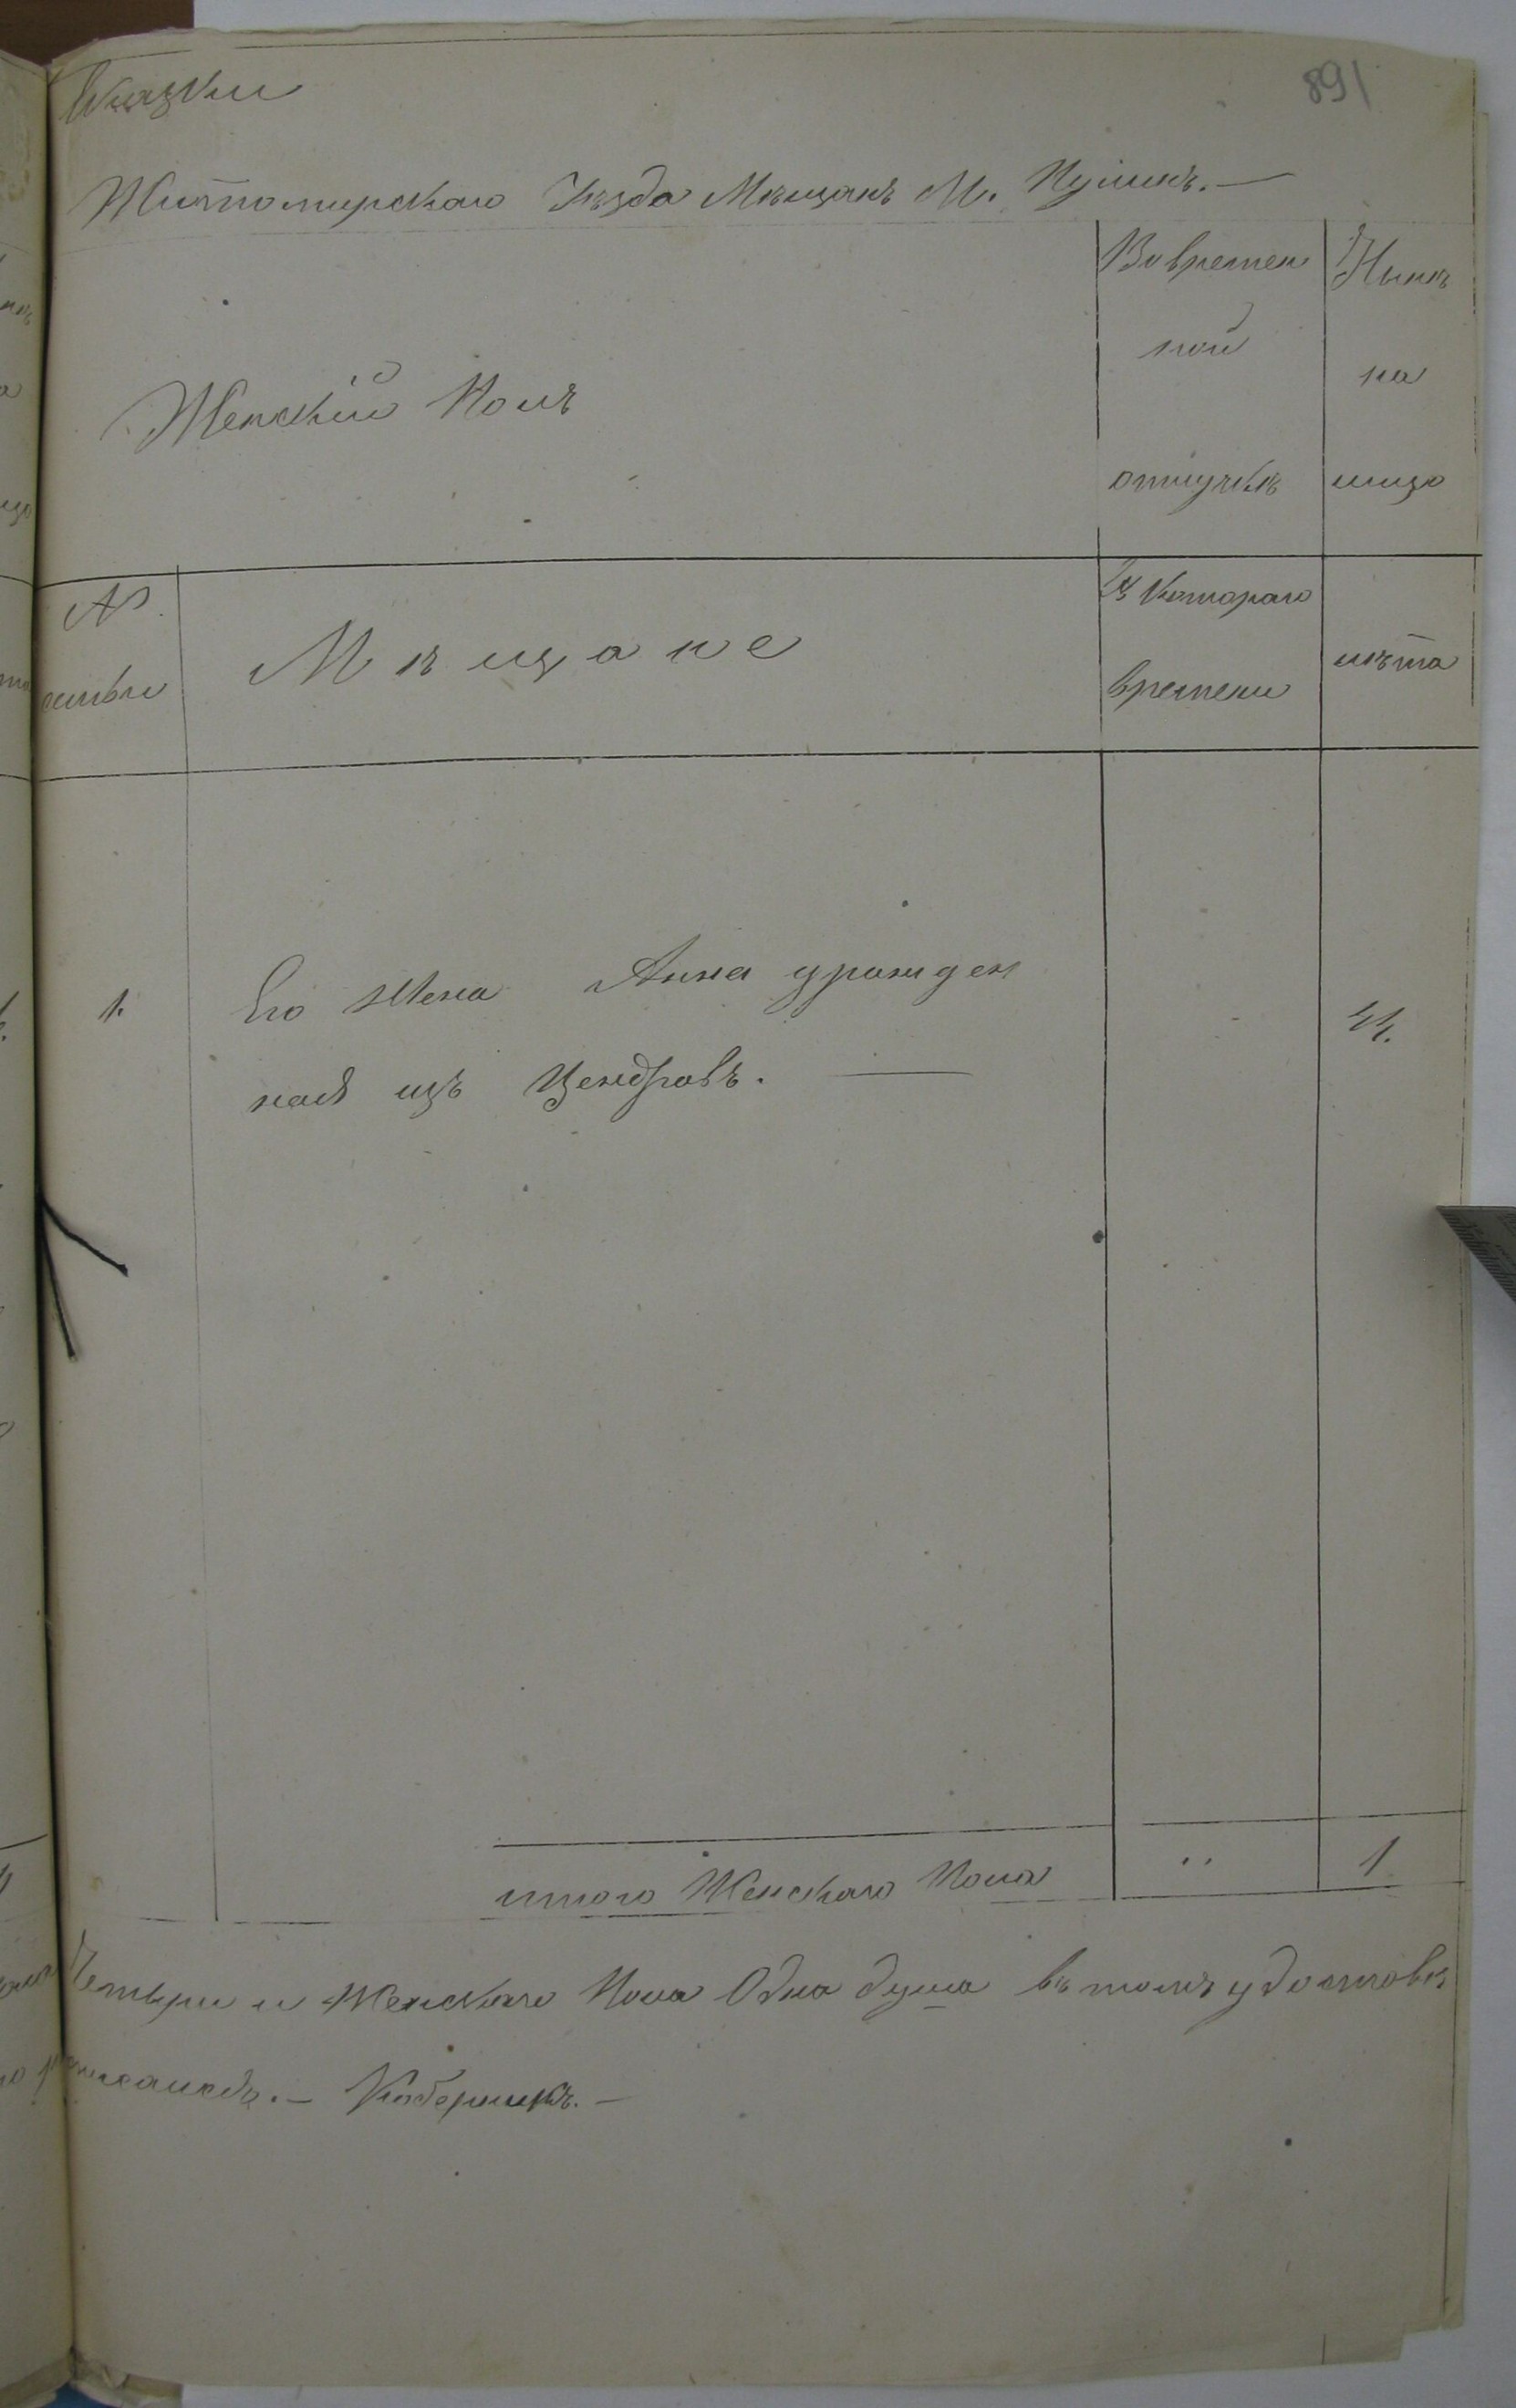 891
Сказки
Житомирскаго Уѣзда Мѣщанъ М. Пулинъ. —
Женскій Полъ
Вовремен
ной
отлучкѣ
Нынѣ
на
лицо
№
семьи
Мѣщане
Съ котораго
времени
лѣта
1. Его жена Анна урожден
ная изъ Цендровъ. —
41.
итого Женскаго Пола " 1
Четыри и Женскаго Пола Одна душа въ томъ удостовѣ